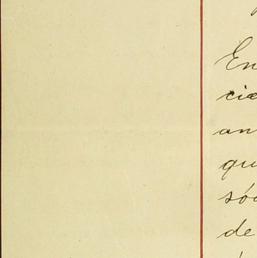 En
cie
an
qu
só
de